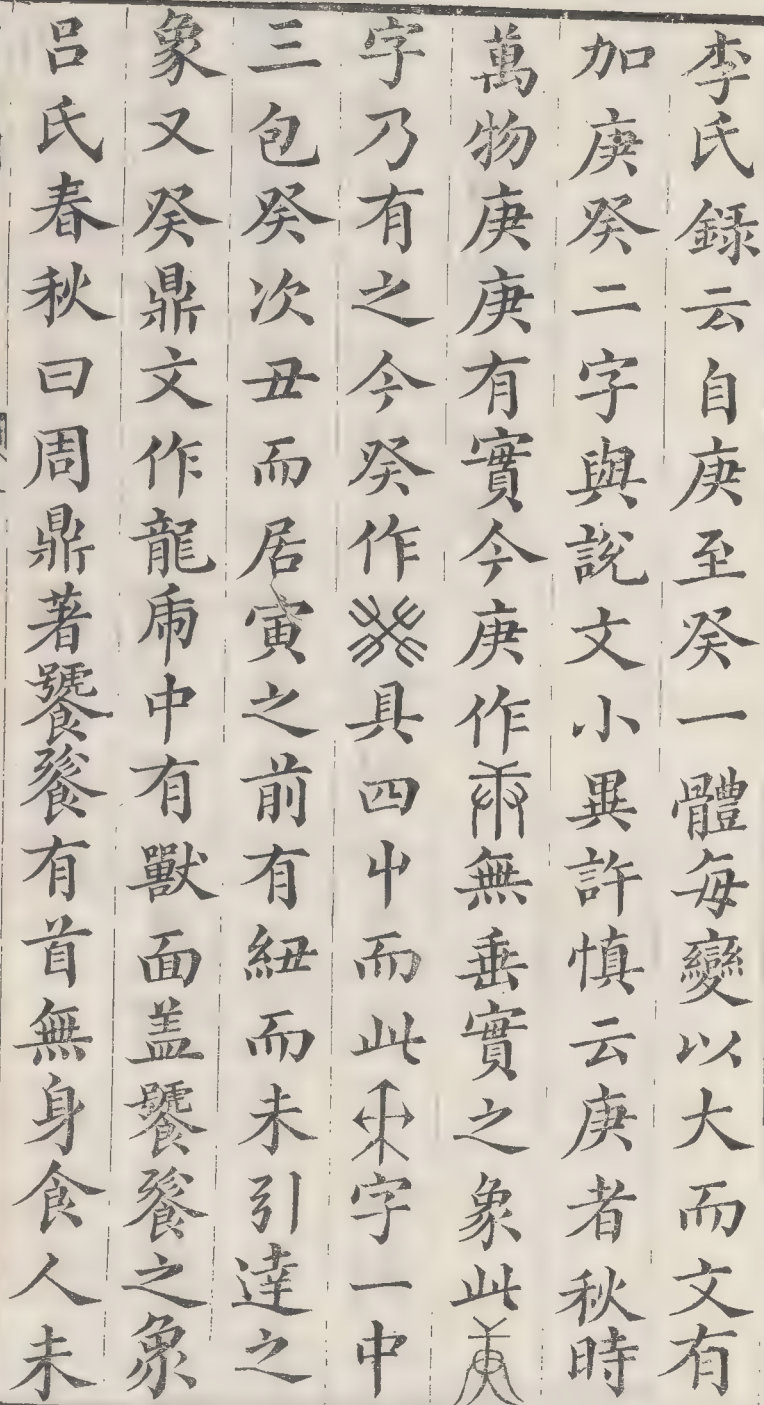 李氏錄云自庚至癸一體每變以大而文有
加庚癸二字與說文小異許慎云庚者秋時
萬物庚庚有實今庚作無垂實之象此
字乃有之今癸作具四屮而此字一中
三包癸次丑而居寅之前有紐而未引達之
象又癸鼎文作龍乕中有獸面盖饕餮之象
呂氏春秋曰周鼎著饕餮有首無身食人未